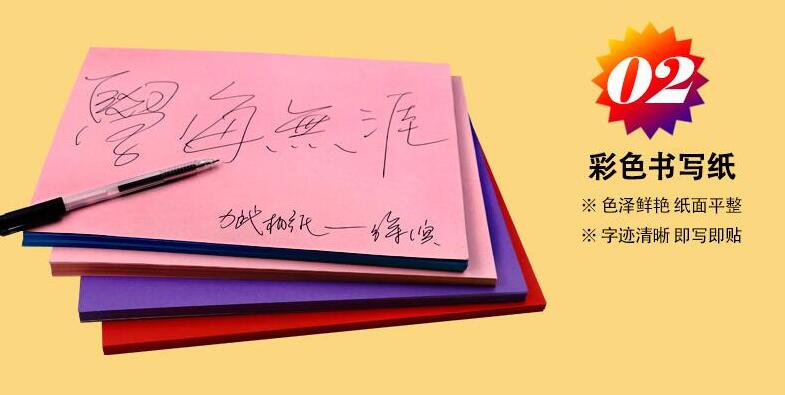 學海無涯
02
彩色书写纸
※ 色泽鲜艳 纸面平整
※ 字迹清晰 即写即贴